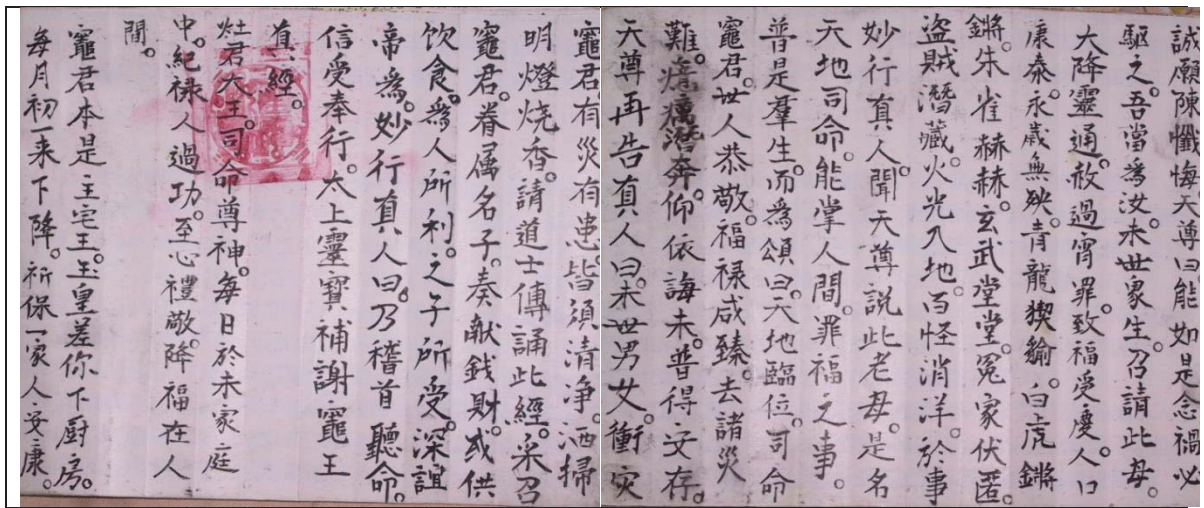 誠願陳懺悔天尊曰能如是念禍必
駆之。吾當為汝。末世衆生。召請此母。
大降靈通。赦過宵罪。致福受慶。人口
康泰。永歲無殃。青龍揳貐。白虎鏘
鏘。朱雀赫赫。玄武堂堂。冤家伏匿。
盜賊潛藏。火光入地。百怪消洋。於事
妙行真人。聞天尊説此老母。是名
天地司命。能掌人間。罪福之事。
普是羣生。而為頌曰。天地臨位。司命
竈君。世人恭敬。福禄咸臻。去諸災
難。癘潛奔。仰依誨未普得安存。
天尊再告真人曰。末世男女。衝灾
竈君有災有患。皆須清净。洒掃
明燈烧香。請道士傳誦此經。采召
竈君。眷属名子。奏献钱財。或供
饮食。為人所利。之子所受。深誼
帝為。妙行真人曰。乃稽首聽命。
信受奉行。太上靈寳補謝竈王
真經。
灶君大王。司命尊神。每日於未家庭
中。紀禄人過功。至心禮敬。降福在人
間。
竈君本是主宅王。玉皇差你下厨房。
每月初一来下降。祈保一家人安康。